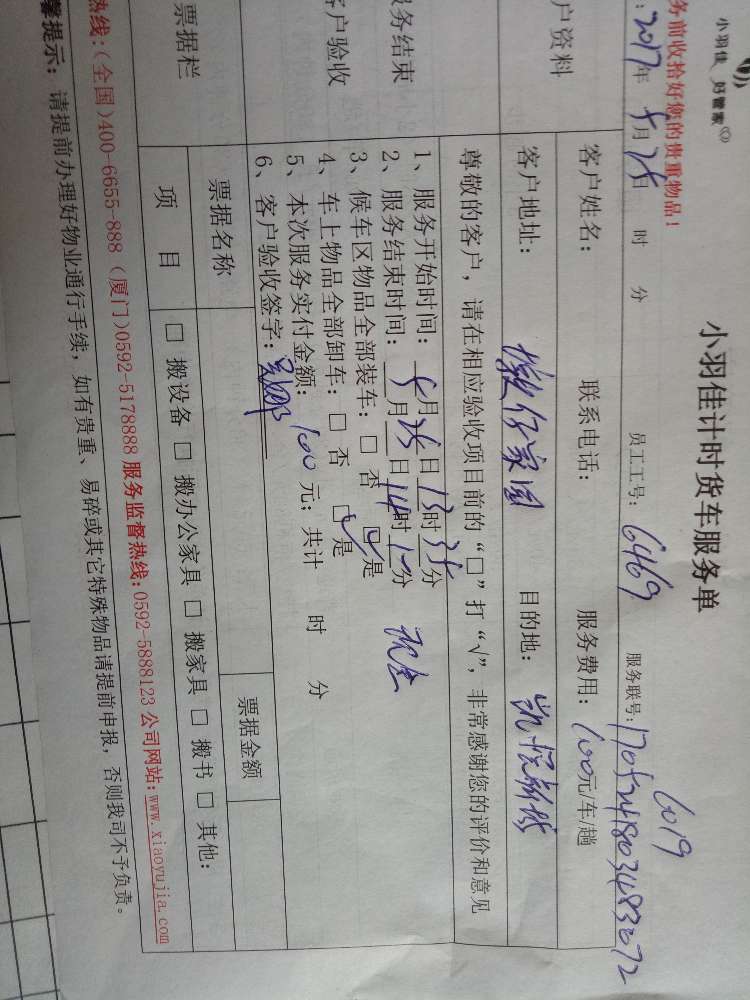 小羽佳 好管家
小羽佳计时货车服务单
务前收拾好您的贵重物品!
6019
:2017年5月25日 时 分 员工工号:6469 服务联号:
户资料 客户姓名: 联系电话: 服务费用:100元/车/趟
客户地址: 家园 目的地:
尊敬的客户,请在相应验收项目前的“□”打“√”,非常感谢您的评价和意见
务结束
客户验收
1、服务开始时间:5月25日13时35分
2、服务结束时间:5月25日14时10分 现金
3、候车区物品全部装车:□否 □是
4、车上物品全部卸车:□否 □是
5、本次服务实付金额:100元;共计 时 分
6、客户验收签字:
票据栏 票据名称 票据金额
项目 □搬设备 □搬办公家具 □搬家具 □搬书 □其他:
热线:(全国)400-6655-888 (厦门)0592-5178888 服务监督热线:0592-5888123 公司网站:www.xiaoyujia.com
馨提示:请提前办理好物业通行手续,如有贵重、易碎或其它特殊物品请提前申报,否则我司不予负责。